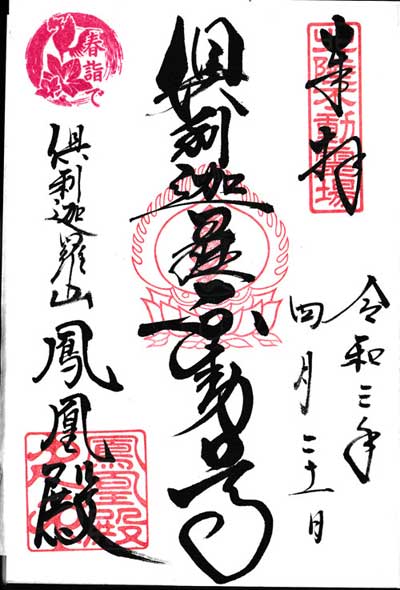 奉拝
北陸不動霊場
令和三年
四月二十一日
倶利迦羅不動尊
春詣で
倶利迦羅山
鳳凰殿
鳳凰殿